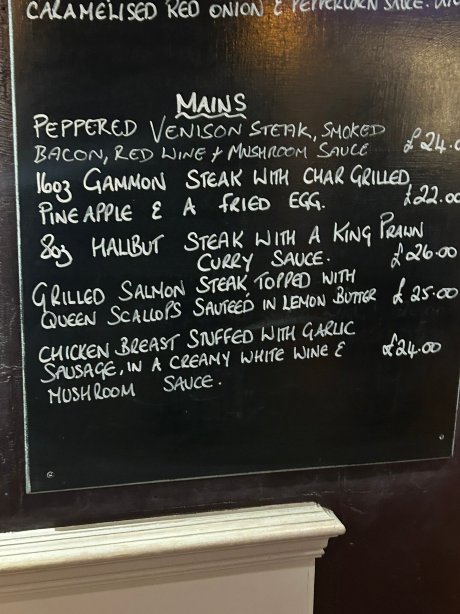 CARAMELISED RED ONION & PEPPERCORN SAUCE.
MAINS
PEPPERED VENISON STEAK, SMOKED
BACON, RED WINE + MUSHROOM SAUCE £24.0
16oz GAMMON STEAK WITH CHAR GRILLED
PINEAPPLE & A FRIED EGG. £22.00
8oz HALIBUT STEAK WITH A KING PRAWN
CURRY SAUCE. £26.00
GRILLED SALMON STEAK TOPPED WITH
QUEEN SCALLOPS SAUTEED IN LEMON BUTTER £25.00
CHICKEN BREAST STUFFED WITH GARLIC
SAUSAGE, IN A CREAMY WHITE WINE & £24.00
MUSHROOM SAUCE.